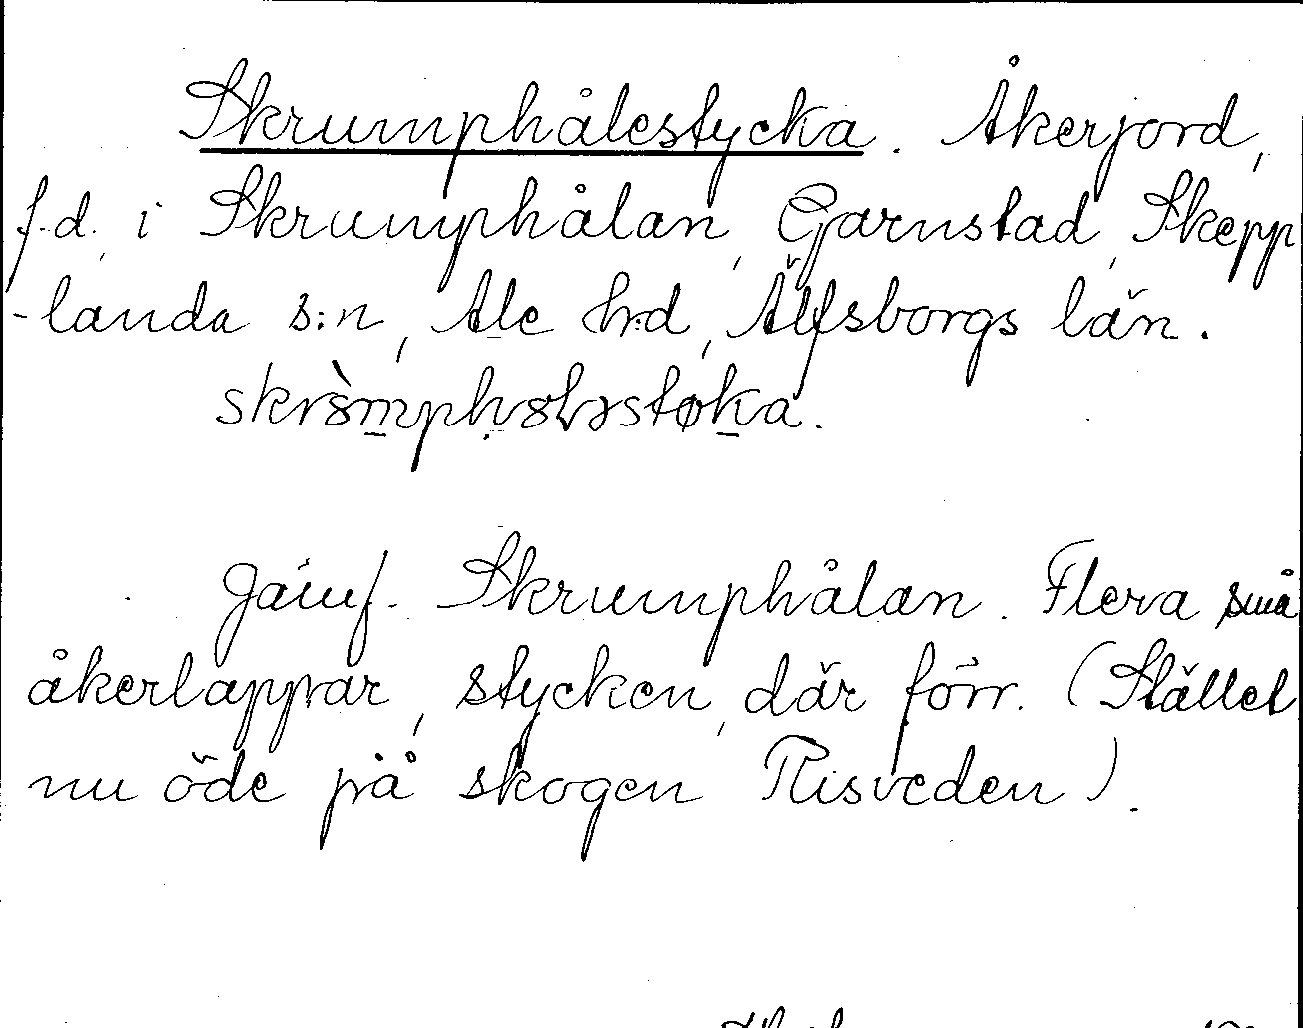 Skrumphålestycka. Åkerjord,
f.d. i Skrumphålan, Garnstad, Skepp
-landa s:n, Ale hrd, Älfsborgs län.
Jämf. Skrumphålan. Flera små
åkerlappar, stycken, där förr. (Stället
nu öde på skogen Risveden).